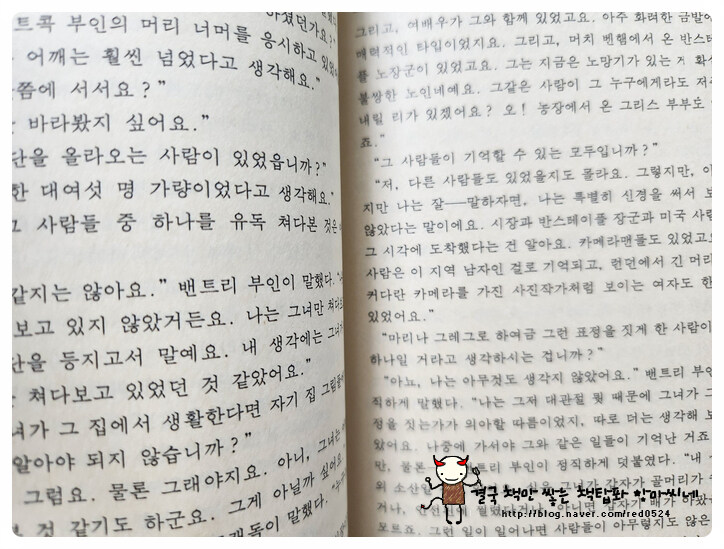 하셨던가요?
트콕 부인의 머리 너머를 응시하고 있었
어깨는 훨씬 넘었다고 생각해요."
쯤에 서서요?"
바라봤지 싶어요."
단을 올라오는 사람이 있었읍니까?"
한 대여섯 명 가량이었다고 생각해요."
그 사람들 중 하나를 유독 쳐다본 것은
같지는 않아요." 밴트리 부인이 말했다.
보고 있지 않았거든요. 나는 그녀만 쳐다보
단을 등지고서 말예요. 내 생각에는 그녀가
쳐다보고 있었던 것 같았어요."
녀가 그 집에서 생활한다면 자기 집 그림들
알아야 되지 않습니까?"
그럼요. 물론 그래야지요. 아니, 그녀는
것 같기도 하군요. 그게 아닐까 싶어요
말했다.
그리고, 여배우가 그와 함께 있었고요. 아주 화려한 금발이
매력적인 타입이었지요. 그리고, 머치 벤햄에서 온 반스테
플 노장군이 있었고요. 그는 지금은 노망기가 있는 게 확실
불쌍한 노인네예요. 그같은 사람이 그 누구에게라도 저주
내릴 리가 있겠어요? 오! 농장에서 온 그리스 부부도
죠."
"그 사람들이 기억할 수 있는 모두입니까?"
"저, 다른 사람들도 있었을지도 몰라요. 그렇지만, 이
지만 나는 잘──말하자면, 나는 특별히 신경을 써서 보
않았다는 말이에요. 시장과 반스테이플 장군과 미국 사람
그 시각에 도착했다는 건 알아요. 카메라맨들도 있었고요
사람은 이 지역 남자인 걸로 기억되고, 런던에서 긴 머리
커다란 카메라를 가진 사진작가처럼 보이는 여자도 한
있었어요."
"마리나 그레그로 하여금 그런 표정을 짓게 한 사람이
하나일 거라고 생각하시는 겁니까?"
"아뇨, 나는 아무것도 생각지 않았어요." 밴트리 부인
직하게 말했다. "나는 그저 대관절 뭣 때문에 그녀가 그
정을 짓는가가 의아할 따름이었지, 따로 더는 생각해 보
았어요. 나중에 가서야 그와 같은 일들이 기억난 거죠
만, 물론── 밴트리 부인이 정직하게 덧붙였다. "내
모르죠. 그런 일이 일어나면 사람들이 아무렇지도 않은
결국 책만 쌓는 책탑파 향마씨네
http://blog.naver.com/red0524